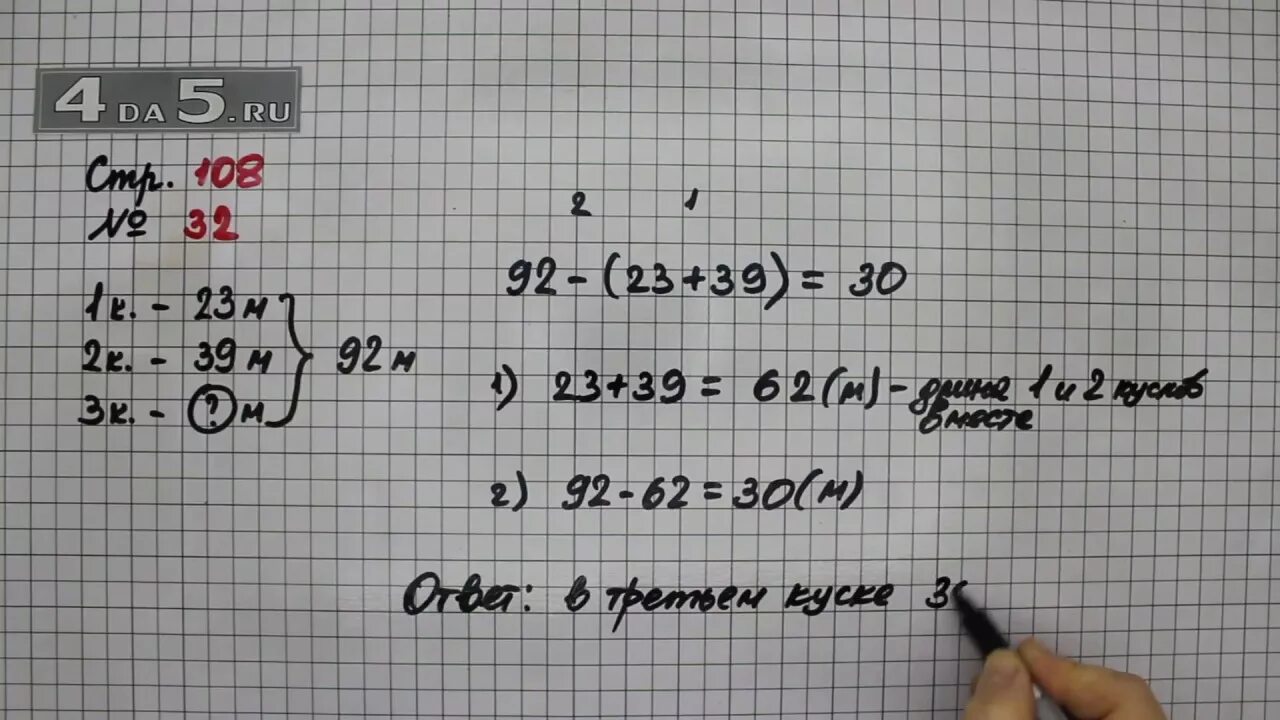 4DA5.RU
Стр. 108
№ 32
1к. - 23 м
2к. - 39 м
3к. - ? м
92 м
2 1
92 - (23 + 39) = 30
1) 23 + 39 = 62 (м) - длина 1 и 2 кусков
вместе
2) 92 - 62 = 30 (м)
Ответ: в третьем куске 3